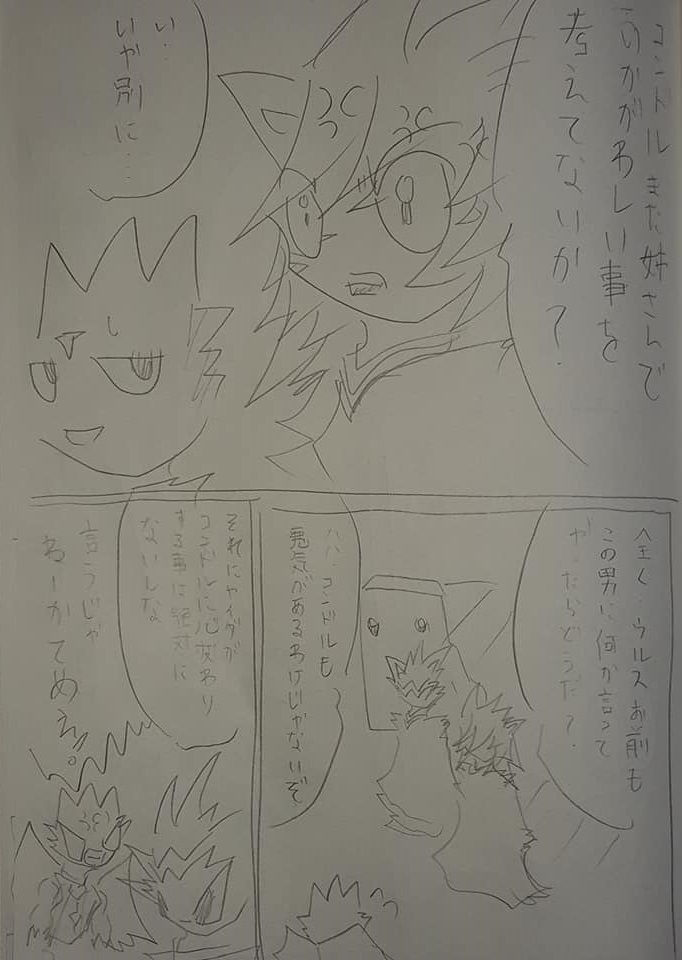 コンドルまた姉さんで
いかがわしい事を
考えてないか？
い…
いや別に…
全く…ウルスお前も
この男に何か言って
やったらどうだ？
ハハ…コンドルも
悪気があるわけじゃないぞ
それに
コンドルに心変わり
する事は絶対に
ないんな
言うじゃ
ねーかてめぇ。